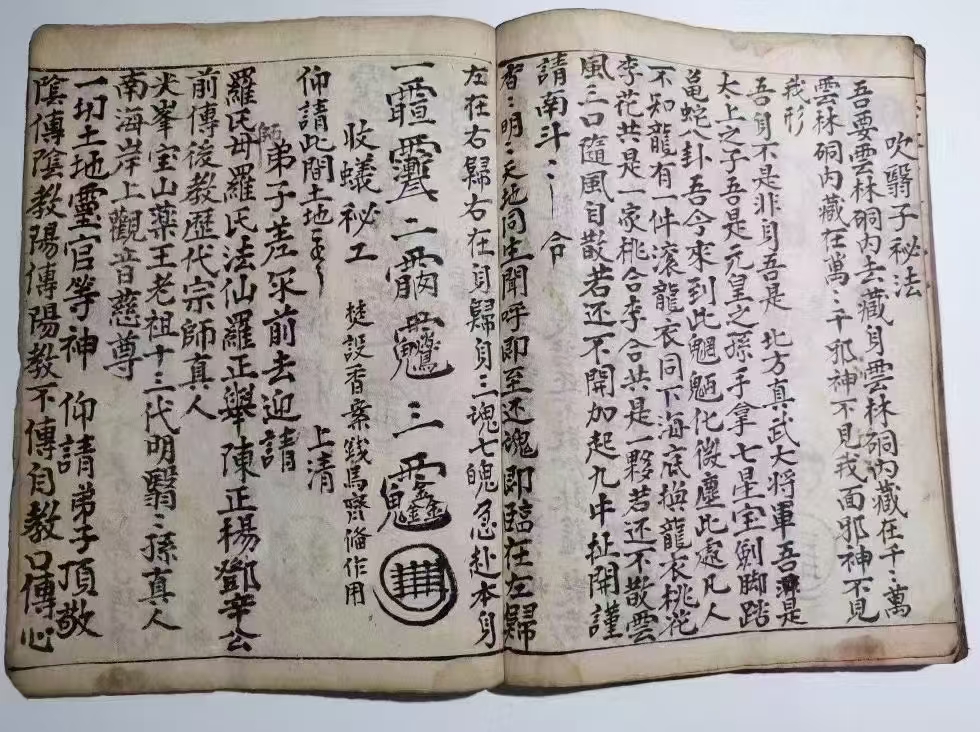 吹翳子秘法
吾要雲林硐内去藏身雲林硐内藏在千〻萬
雲林硐内藏在萬〻千邪神不見我面邪神不見
我形
吾身不是非身吾是 北方真武大将軍吾是
太上之子吾是元皇之孫手拿七星宝劍脚踏
龜蛇八卦吾今來到此魍魎化微塵此處凡人
不知龍有一件滚龍衣同下海底換龍衣桃花
李花共是一家桃合李合共是一夥若还不散雲
風三口隨風自散若还不開加起九牛扯開謹
請南斗〻 合
明〻天地同生聞呼即至还魂即臨在左歸
左在右歸右在身歸身三魂七魄急赴本身
一 二 三
收蟻秘工 設香案錢馬齊俻作用
仰請此間土地 上清
師弟子差承前去迎請
羅民毋羅氏法仙羅正舉陳正楊鄧辛公
前傳後教歷代宗師真人
尖峯宝山藥王老祖十三代明醫〻孫真人
南海岸上觀音慈尊
一切土地靈官等神 仰請弟子頂敬
陰傳陰教陽傳陽教不傳自教口傳心